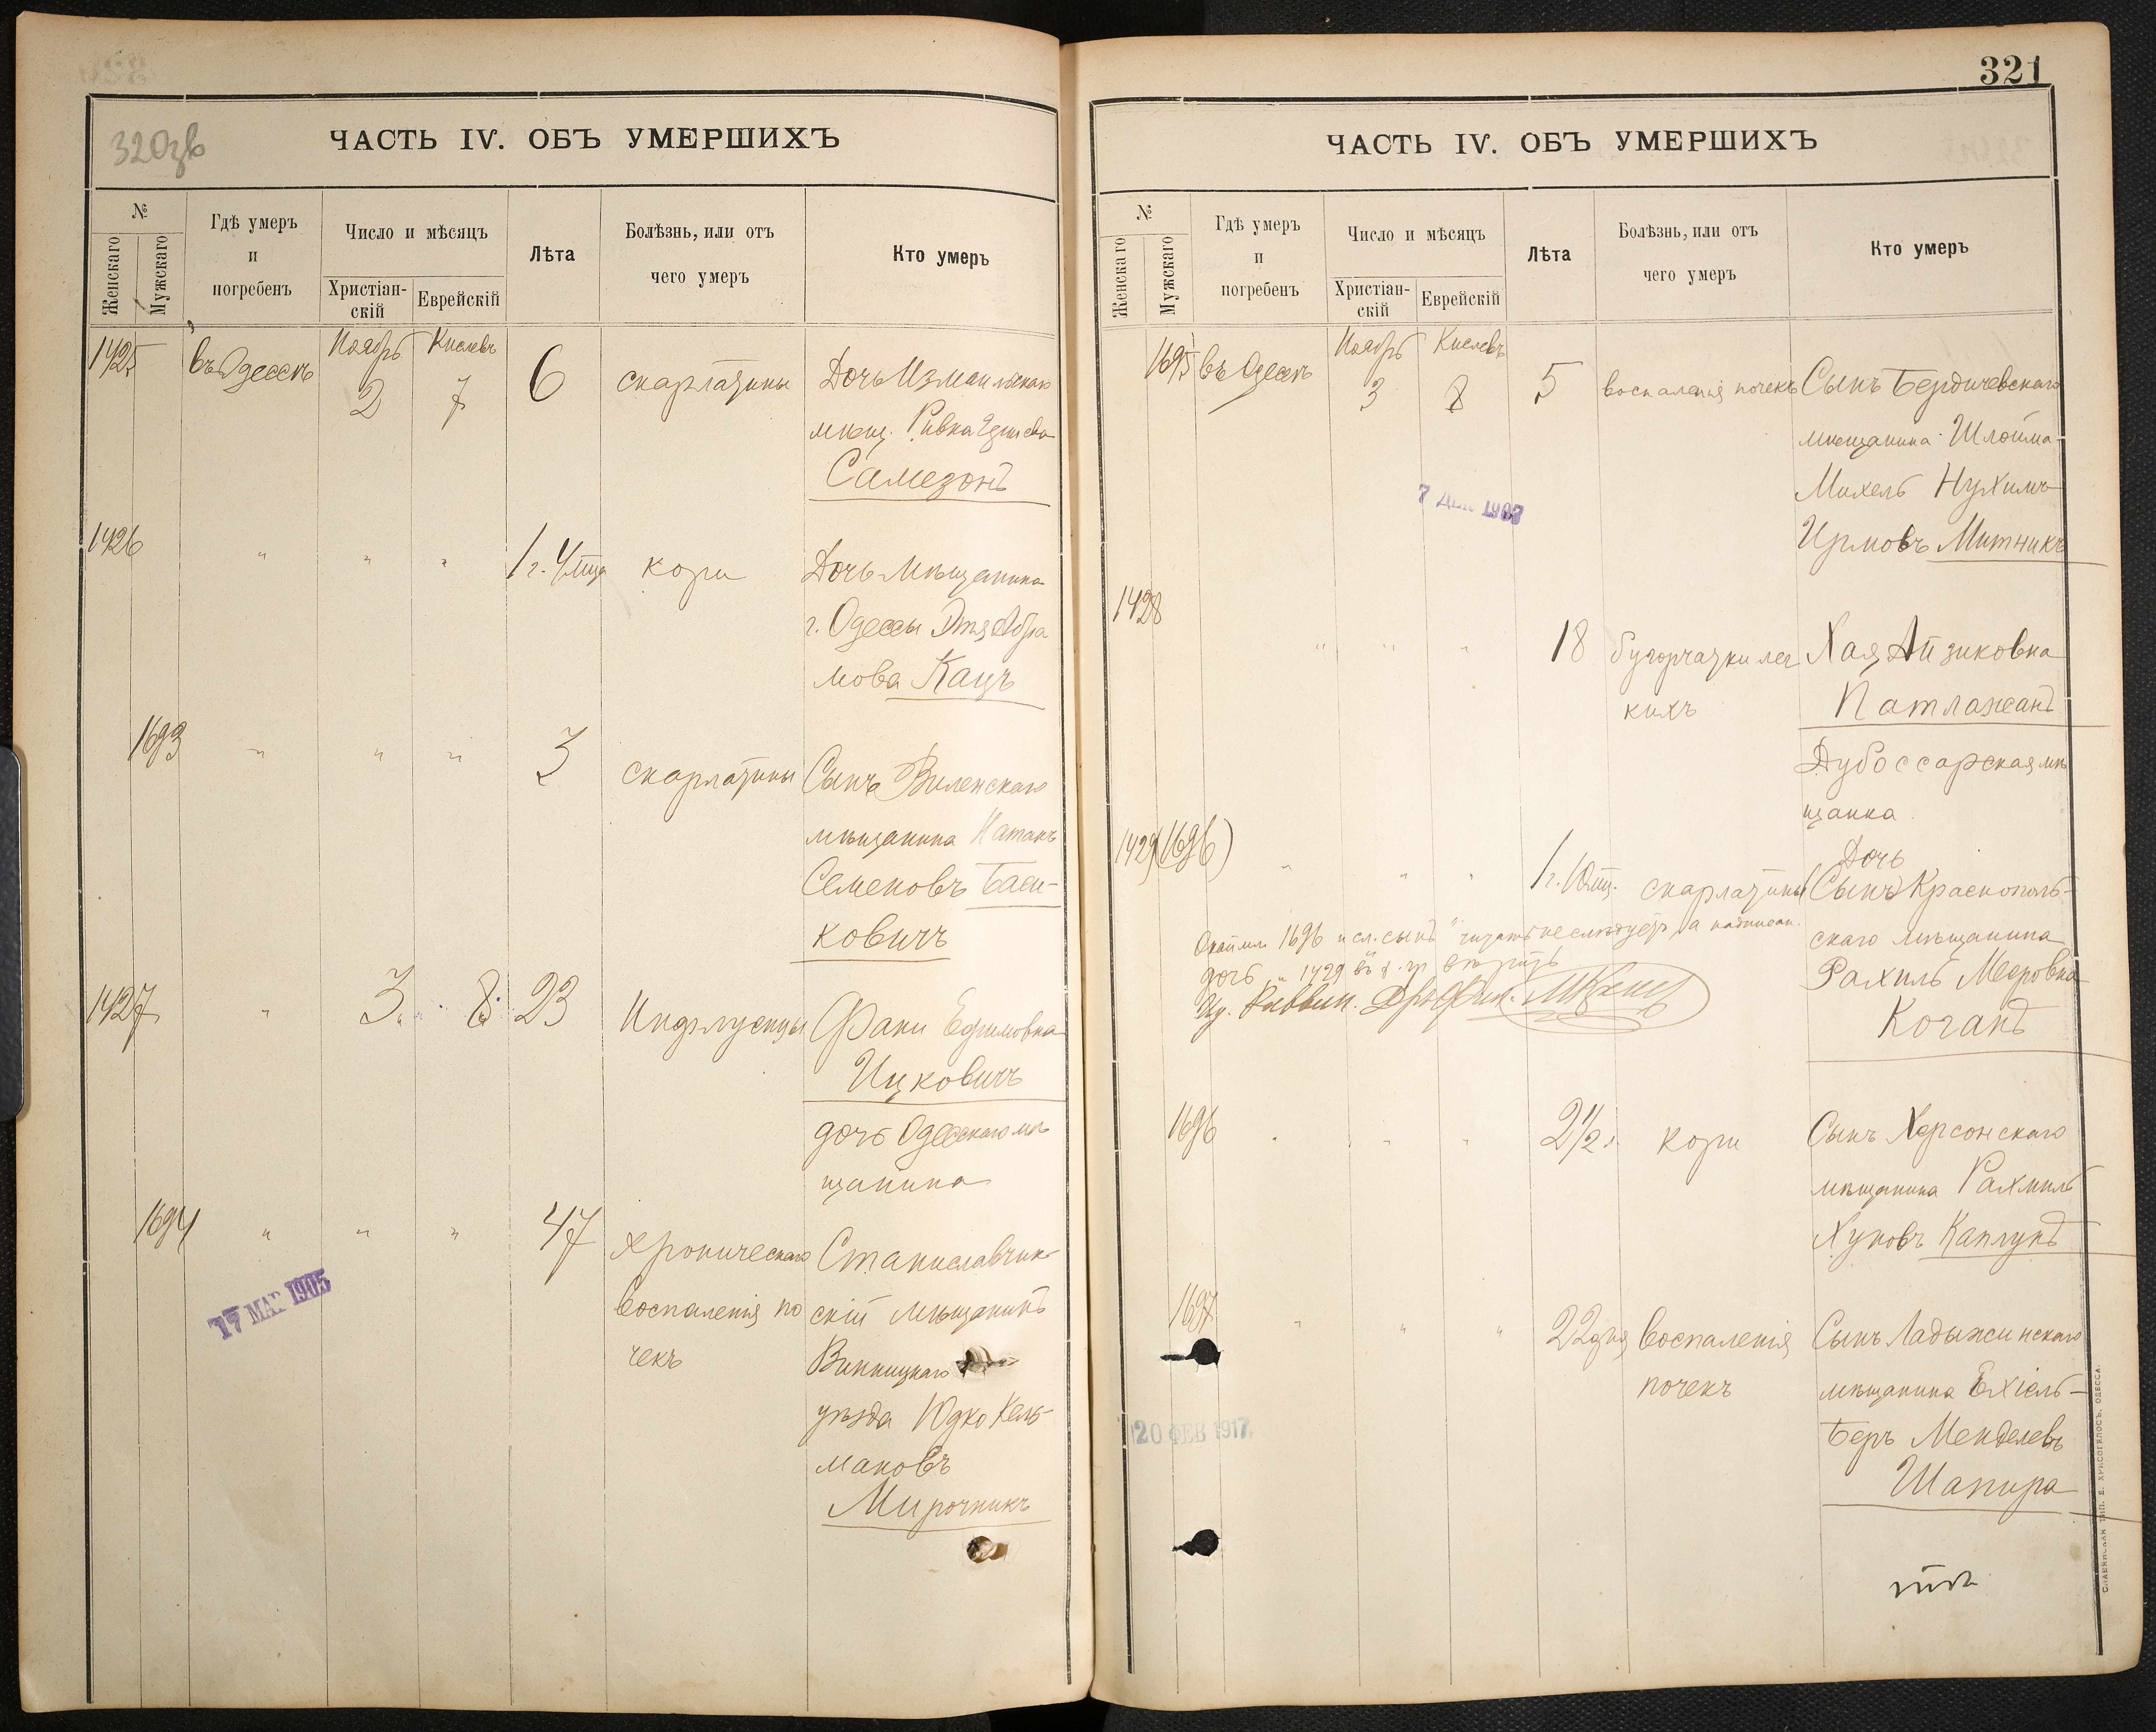 320зв
ЧАСТЬ IV. ОБЪ УМЕРШИХЪ
№
Женскаго
Мужскаго
Гдѣ умеръ
и
погребенъ
Число и мѣсяцъ
Христіан-
скій
Еврейскій
Лѣта
Болѣзнь, или отъ
чего умеръ
Кто умеръ
1425 въ Одессѣ Ноябрь 2 Кислевъ 7 6 скарлатины Дочь Измаильскаго
мѣщ. Ривка
Самезонъ
1426 " " " 1 г. 4 мца кори Дочь Мѣщанина
г. Одессы Этя Абра
мова Кацъ
1693 " " " 3 скарлатины Сынъ Виленскаго
мѣщанина Натанъ
Семеновъ Баси-
ковичъ
1427 " 3 8 23 Инфлуенцы Фани Ефимовна
Ицковичъ
дочь Одесскаго мѣ
щанина
1694 " " " 47 хроническаго Станиславчик-
воспаленія по скій мѣщанинъ
чекъ Винницкаго
уѣзда Юдко Кель-
мановъ
Мирочникъ
17 МАР 1905
321
ЧАСТЬ IV. ОБЪ УМЕРШИХЪ
№
Женскаго
Мужскаго
Гдѣ умеръ
и
погребенъ
Число и мѣсяцъ
Христіан-
скій
Еврейскій
Лѣта
Болѣзнь, или отъ
чего умеръ
Кто умеръ
1695 въ Одессѣ Ноябрь 3 Кислевъ 8 5 воспаленія почекъ Сынъ Бердичевскаго
мѣщанина Шлойма-
Михель Нухимъ
Ицмовъ Митникъ
7 ДЕК 1907
1428 " " " 18 бугорчатки лег Хая Айзиковна
кихъ Патлажанъ
Дубоссарская мѣ
щанка
1429 (1696) " " " 1 г. 10 мц. скарлатины Дочь
(Сынъ) Краснополь-
скаго мѣщанина
Рахиль Мееровна
Коганъ
1696 и сл. сынъ " читать не слѣдуетъ, а надписан.
дочь " 1429
Раввин.
1696 " " " 2 1/2 г. кори Сынъ Херсонскаго
мѣщанина Рахмиль
Хуновъ Каплунъ
1697 " " " 22 дня воспаленія Сынъ Ладыжинскаго
почекъ мѣщанина Ехіель-
Беръ Менделевъ
Шапира
20 ФЕВ 1917
СЛАВЯНСКАЯ ТИП. Е. ХРИСОГЕЛОСЪ, ОДЕССА.